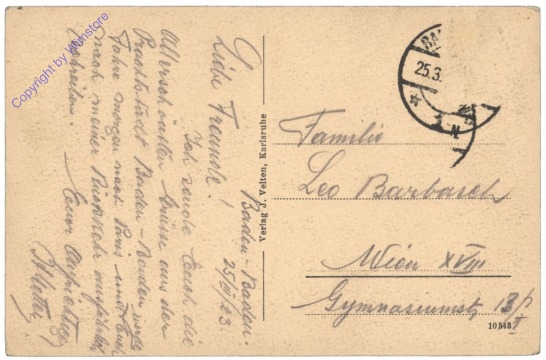 Copyright by Wunstore
Baden-Baden.
25/III 23.
Liebe Freunde!
Ich sende Euch die
allerschönsten Grüsse aus der
Prachtstadt Baden-Baden
Fahre morgen nach Paris und
nach meiner Rückkehr ausführlich
schreiben.
Euer aufrichtiger
Verlag J. Velten, Karlsruhe
BA
25.3.
Familie
Leo Barbasch
Wien XVIII
Gymnasiumstr 13/I
10543